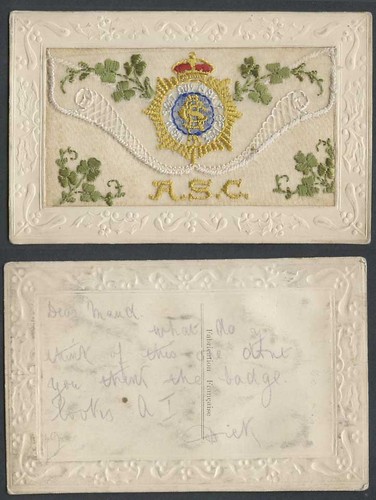 A.S.C.
Dear Maud
what do
think of this one dont
you think the badge
looks A I
Dick
Fabrication Française